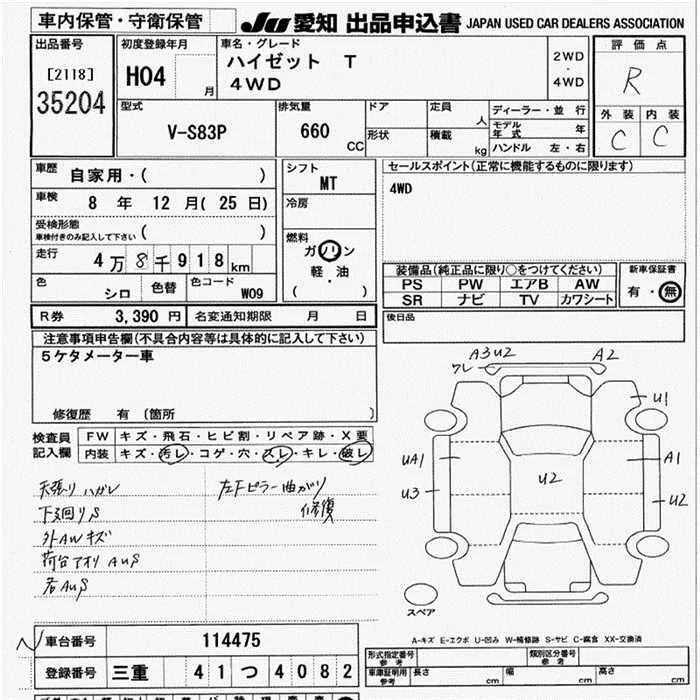 車内保管・守衛保管
JU 愛知 出品申込書 JAPAN USED CAR DEALERS ASSOCIATION
出品番号
[2118]
35204
初度登録年月
H04 月
車名・グレード
ハイゼット T
4WD
2WD
・
4WD
評価点
R
外装 内装
C C
型式
V-S83P
排気量
660 CC
ドア
形状
定員 人
積載 kg
ディーラー・並行
モデル年式 年
ハンドル 左・右
車歴 自家用・( )
車検 8 年 12 月( 25 日)
受検形態
車検付きのみ記入して下さい ( )
走行 4万8千918km
色 シロ 色替 色コード W09
シフト
MT
冷房
燃料
ガソリン
軽・油
( )
セールスポイント(正常に機能するものに限ります)
4WD
装備品(純正品に限り○をつけてください)
PS PW エアB AW
SR ナビ TV カワシート
新車保証書
有・無
R券 3,390 円 名変通知期限 月 日
後日品
注意事項申告欄(不具合内容等は具体的に記入して下さい)
5ケタメーター車
修復歴 有 (箇所 )
検査員記入欄
FW キズ・飛石・ヒビ割・リペア跡・X要
内装 キズ・汚レ・コゲ・穴・スレ・キレ・破レ
天張りハガレ
下回りS
外AWキズ
荷台アオリ AUS
左下ピラー曲がり
修復
A3U2
ワレ
A2
U1
UA1
U3
U2
A1
U2
スペア
A-キズ E-エクボ U-凹み W-補修跡 S-サビ C-腐食 XX-交換済
車台番号 114475
登録番号 三重 41 つ 4082
形式指定番号
参考
類別区分番号
参考
車庫証明用
参考
長さ cm 幅 cm 高さ cm